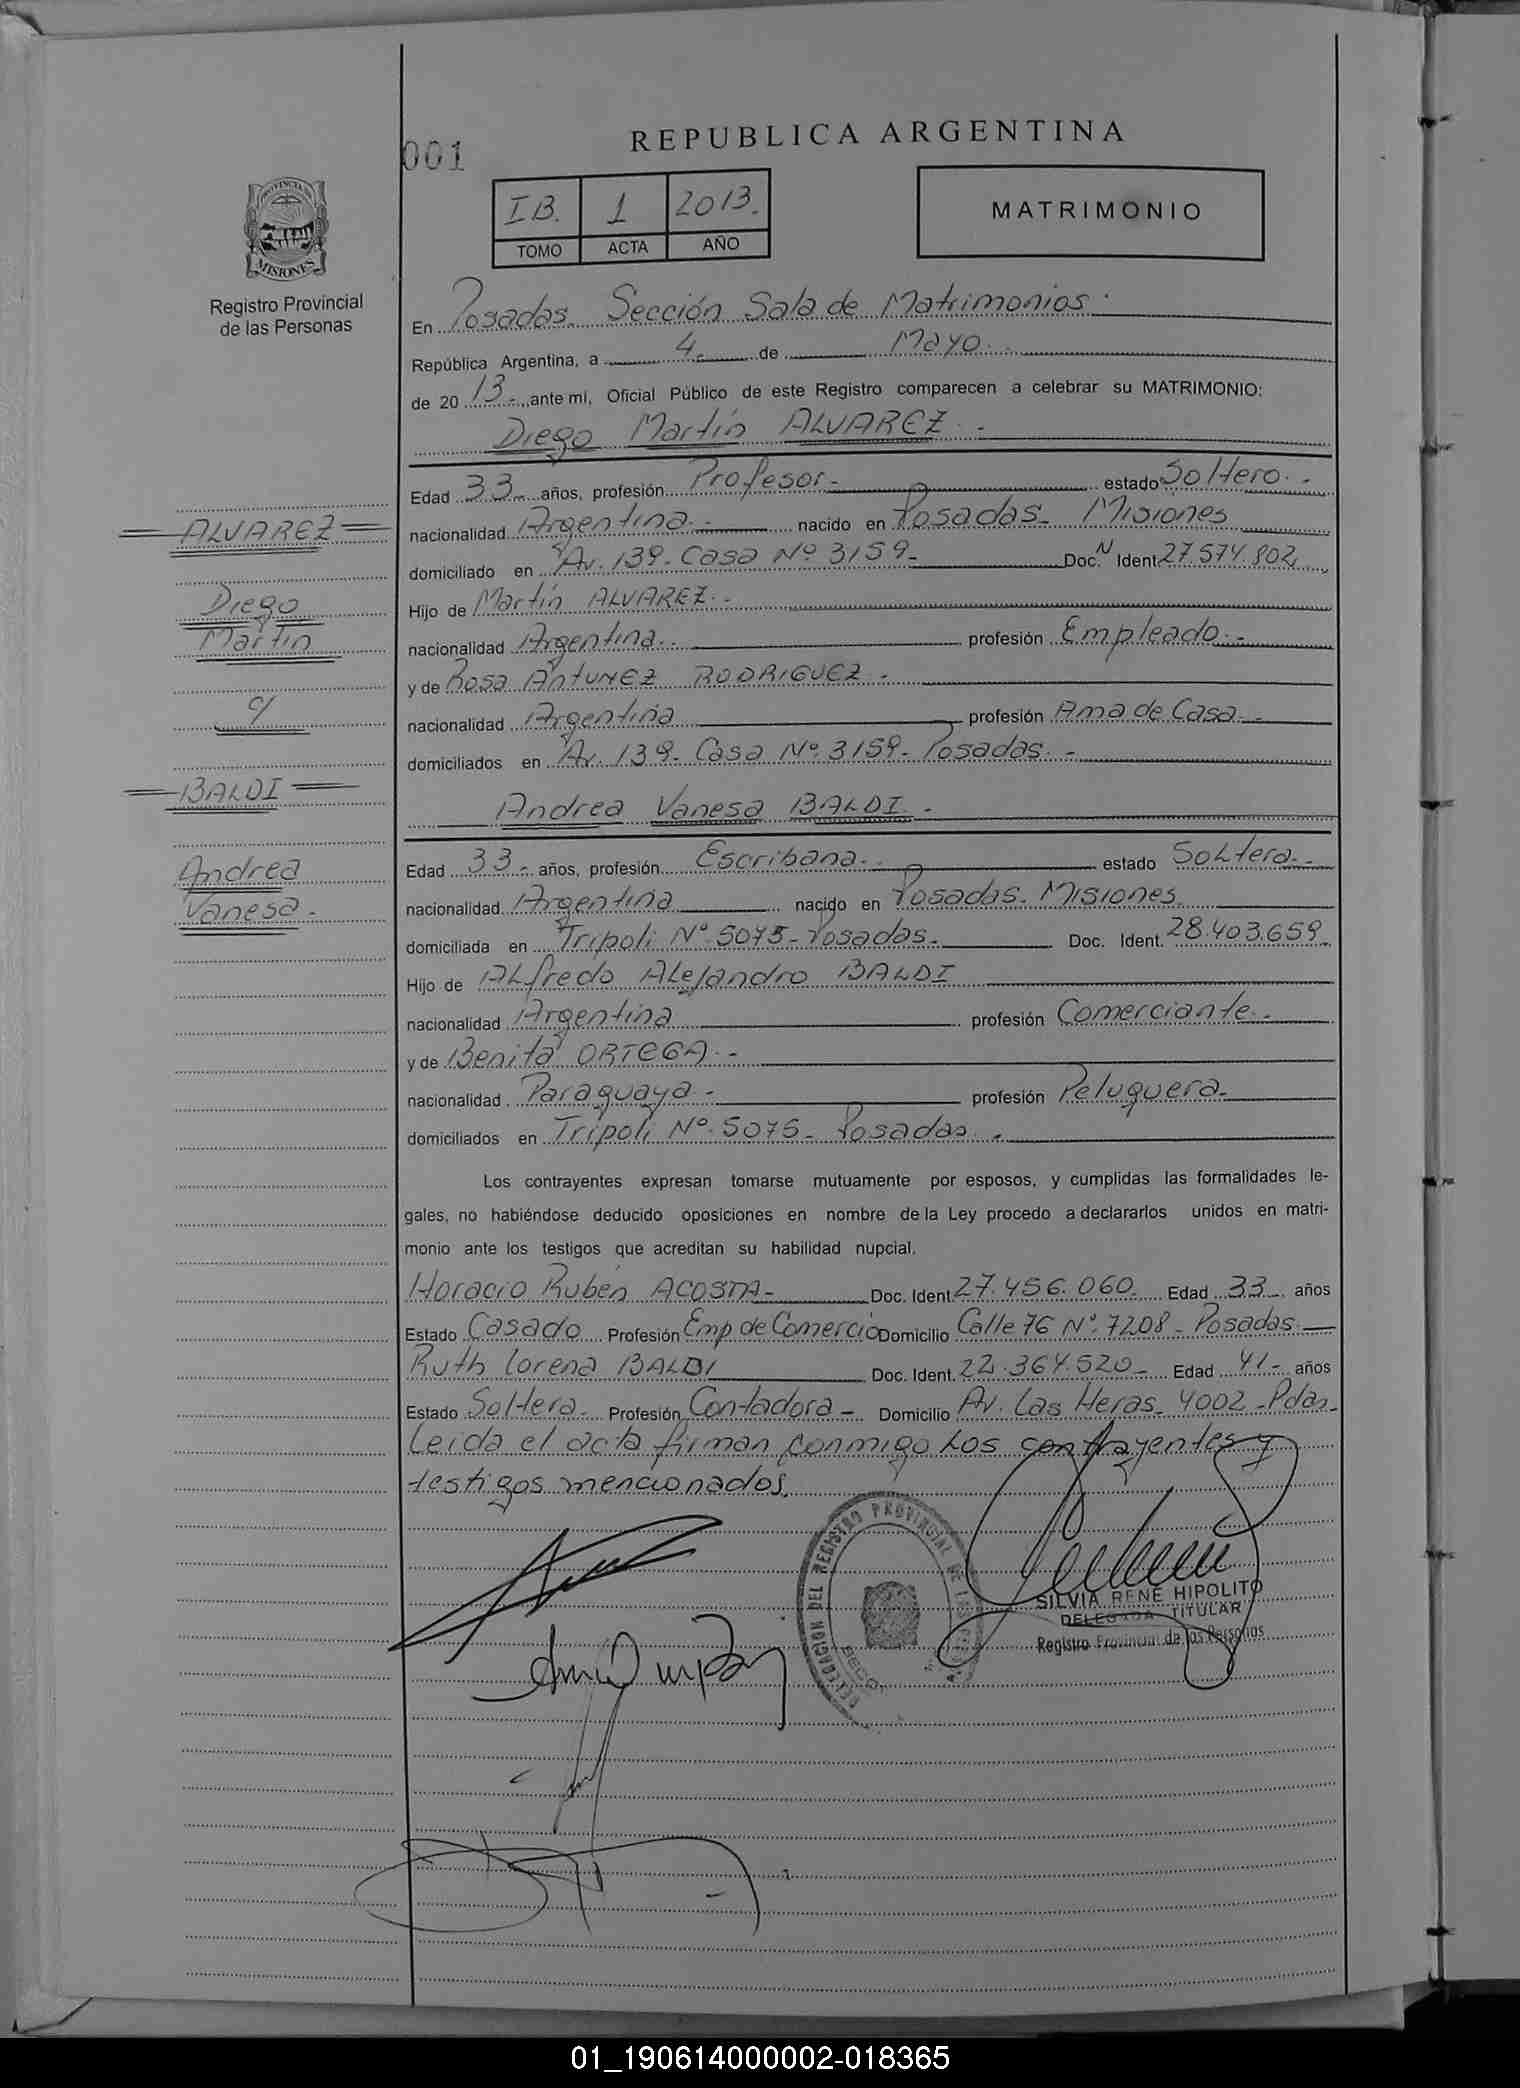 001
REPUBLICA ARGENTINA
MATRIMONIO
IB. 1 2013.
TOMO ACTA AÑO
PROVINCIA DE
MISIONES
Registro Provincial
de las Personas
En Posadas. Sección Sala de Matrimonios.
República Argentina, a 4. de Mayo.
de 20 13. ante mi, Oficial Público de este Registro comparecen a celebrar su MATRIMONIO:
Diego Martín ALVAREZ.
Edad 33 años, profesión Profesor estado Soltero.
nacionalidad Argentina. nacido en Posadas. Misiones
domiciliado en Av. 139. Casa Nº 3159. Doc. N Ident 27.574.802
Hijo de Martín ALVAREZ.
nacionalidad Argentina. profesión Empleado.
y de Rosa ANTUNEZ RODRIGUEZ.
nacionalidad Argentina profesión Ama de Casa.
domiciliados en Av. 139. Casa Nº. 3159. Posadas.
Andrea Vanesa BALDI.
Edad 33. años, profesión Escribana. estado Soltera.
nacionalidad Argentina nacido en Posadas. Misiones
domiciliada en Tripoli Nº. 5075 - Posadas. Doc. Ident. 28.403.659
Hijo de Alfredo Alejandro BALDI
nacionalidad Argentina profesión Comerciante.
y de Benita ORTEGA.
nacionalidad Paraguaya. profesión Peluquera.
domiciliados en Tripoli Nº. 5075 - Posadas.
Los contrayentes expresan tomarse mutuamente por esposos, y cumplidas las formalidades le-
gales, no habiéndose deducido oposiciones en nombre de la Ley procedo a declararlos unidos en matri-
monio ante los testigos que acreditan su habilidad nupcial.
Horacio Rubén ACOSTA Doc. Ident 27.456.060. Edad 33 años
Estado Casado Profesión Emp de Comercio Domicilio Calle 76 Nº. 7208 - Posadas.
Ruth Lorena BALDI Doc. Ident. 22.364.520 Edad 41 años
Estado Soltera Profesión Contadora Domicilio Av. Las Heras. 4002 - Pdas.
Leída el acta firman conmigo los contrayentes y
testigos mencionados.
DELEGACION DEL REGISTRO PROVINCIAL DE LAS
SILVIA RENE HIPOLITO
DELEGADA TITULAR
Registro Provincial de las Personas
ALVAREZ
Diego
Martín
c/
BALDI
Andrea
Vanesa.
01_190614000002-018365